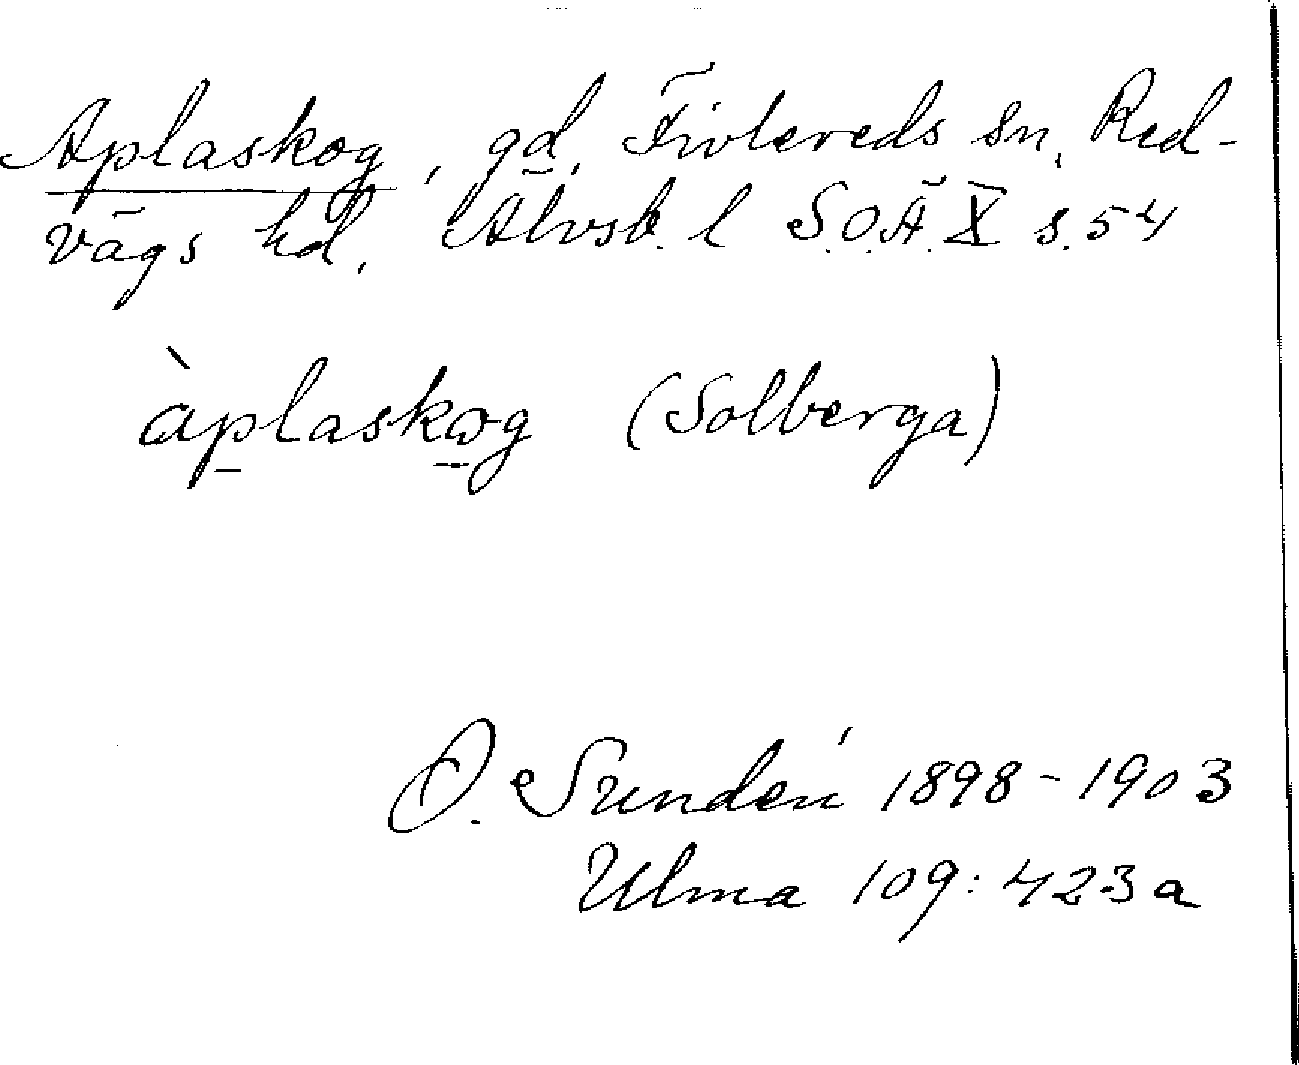 Aplaskog, gd, Fivlereds sn, Red-
vägs hd, Älvsb. l S.O.Ä. X s. 54
àplaskωg (Solberga)
D. Sundén 1898-1903
Ulma 109:423a